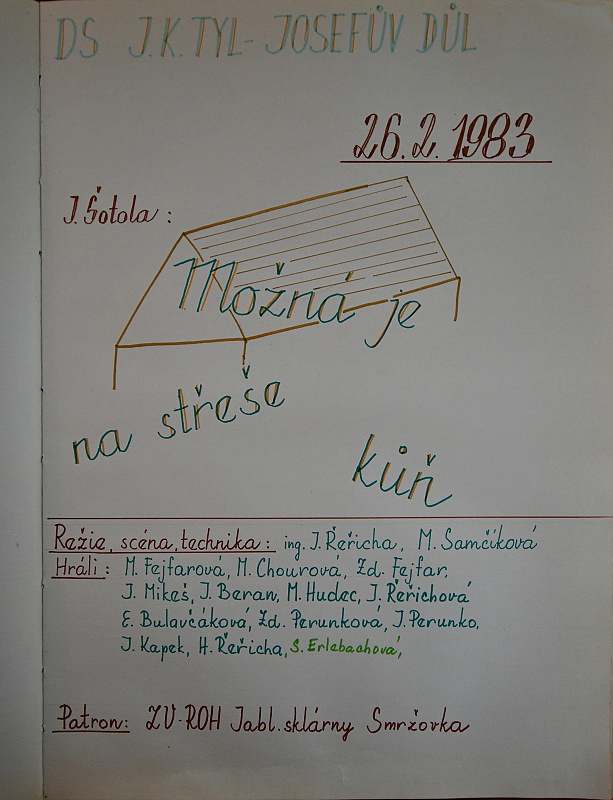 DS J.K.TYL - JOSEFŮV DŮL
26.2.1983
J. Šotola :
Možná je
na střeše
kůň
Režie, scéna, technika: ing. J. Řeřicha, M. Samčíková
Hráli: M. Fejfarová, M. Chourová, Zd. Fejfar,
J. Mikeš, J. Beran, M. Hudec, J. Řeřichová
E. Bulavčáková, Zd. Perunková, J. Perunko,
J. Kapek, H. Řeřicha, S. Erlebachová,
Patron: ZV-ROH Jabl. sklárny Smržovka